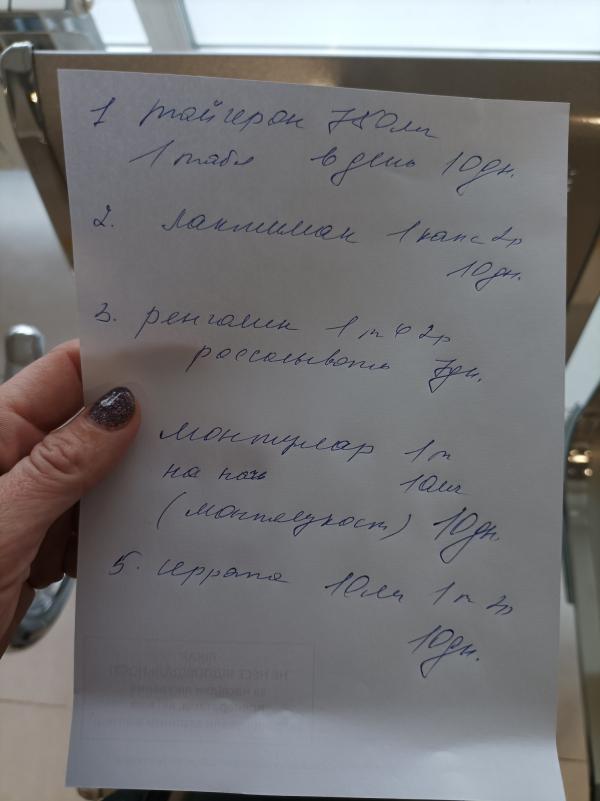 1 Тайгерон 750мг
1 табл в день 10дн.
2. Лактимак 1 капс 2р
10дн.
3. Ренгалин 1 т 2р
рассасывать 7дн.
Монтулар 1т
на ночь 10мг
(монтелукаст) 10дн.
5. Серрата 10мг 1т 2р
10дн.
ЛІКАР
НЕ НЕСЕ ВІДПОВІДАЛЬНОСТІ